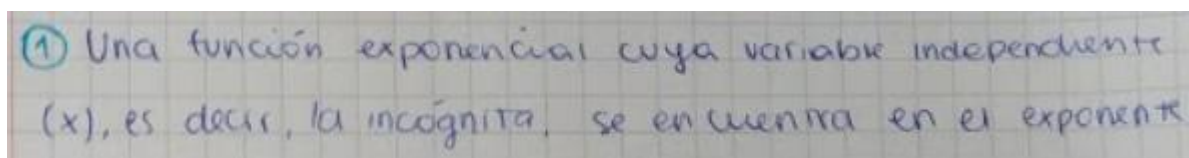 ① Una función exponencial cuya variable independiente
(x), es decir, la incógnita, se encuentra en el exponente